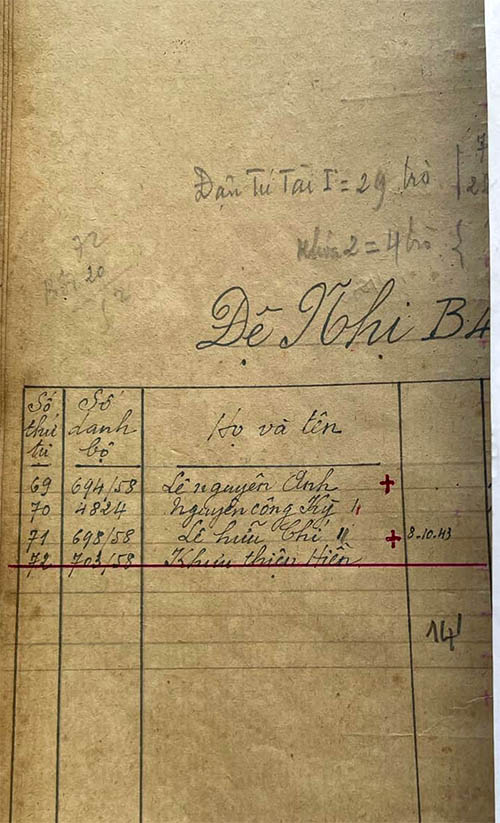 Đậu Tú Tài I = 29 trò
khóa 2 = 4 trò
72
20
52
Đệ Nhị B4
Số thứ tự
Số danh bộ
Họ và tên
69 694/58 Lê nguyên Anh +
70 4824 Nguyễn công Kỳ "
71 698/58 Lê hữu Chí " + 8.10.43
72 703/58 Khưu thiện Hiền
14